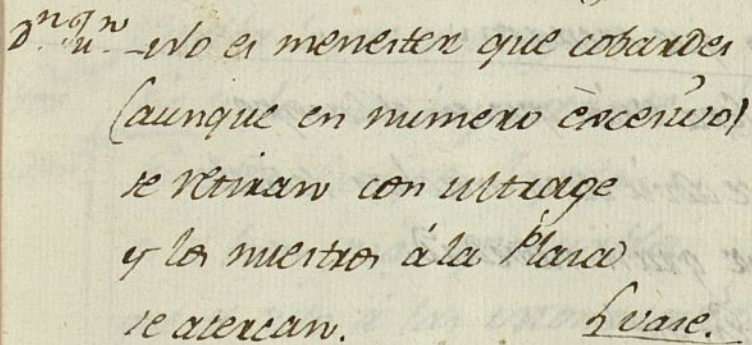 No es menester que cobardes
(aunque en numero èxcesivo)
se retiran con ultrage
y los nuestros á la Plasa
se acercan. vase.